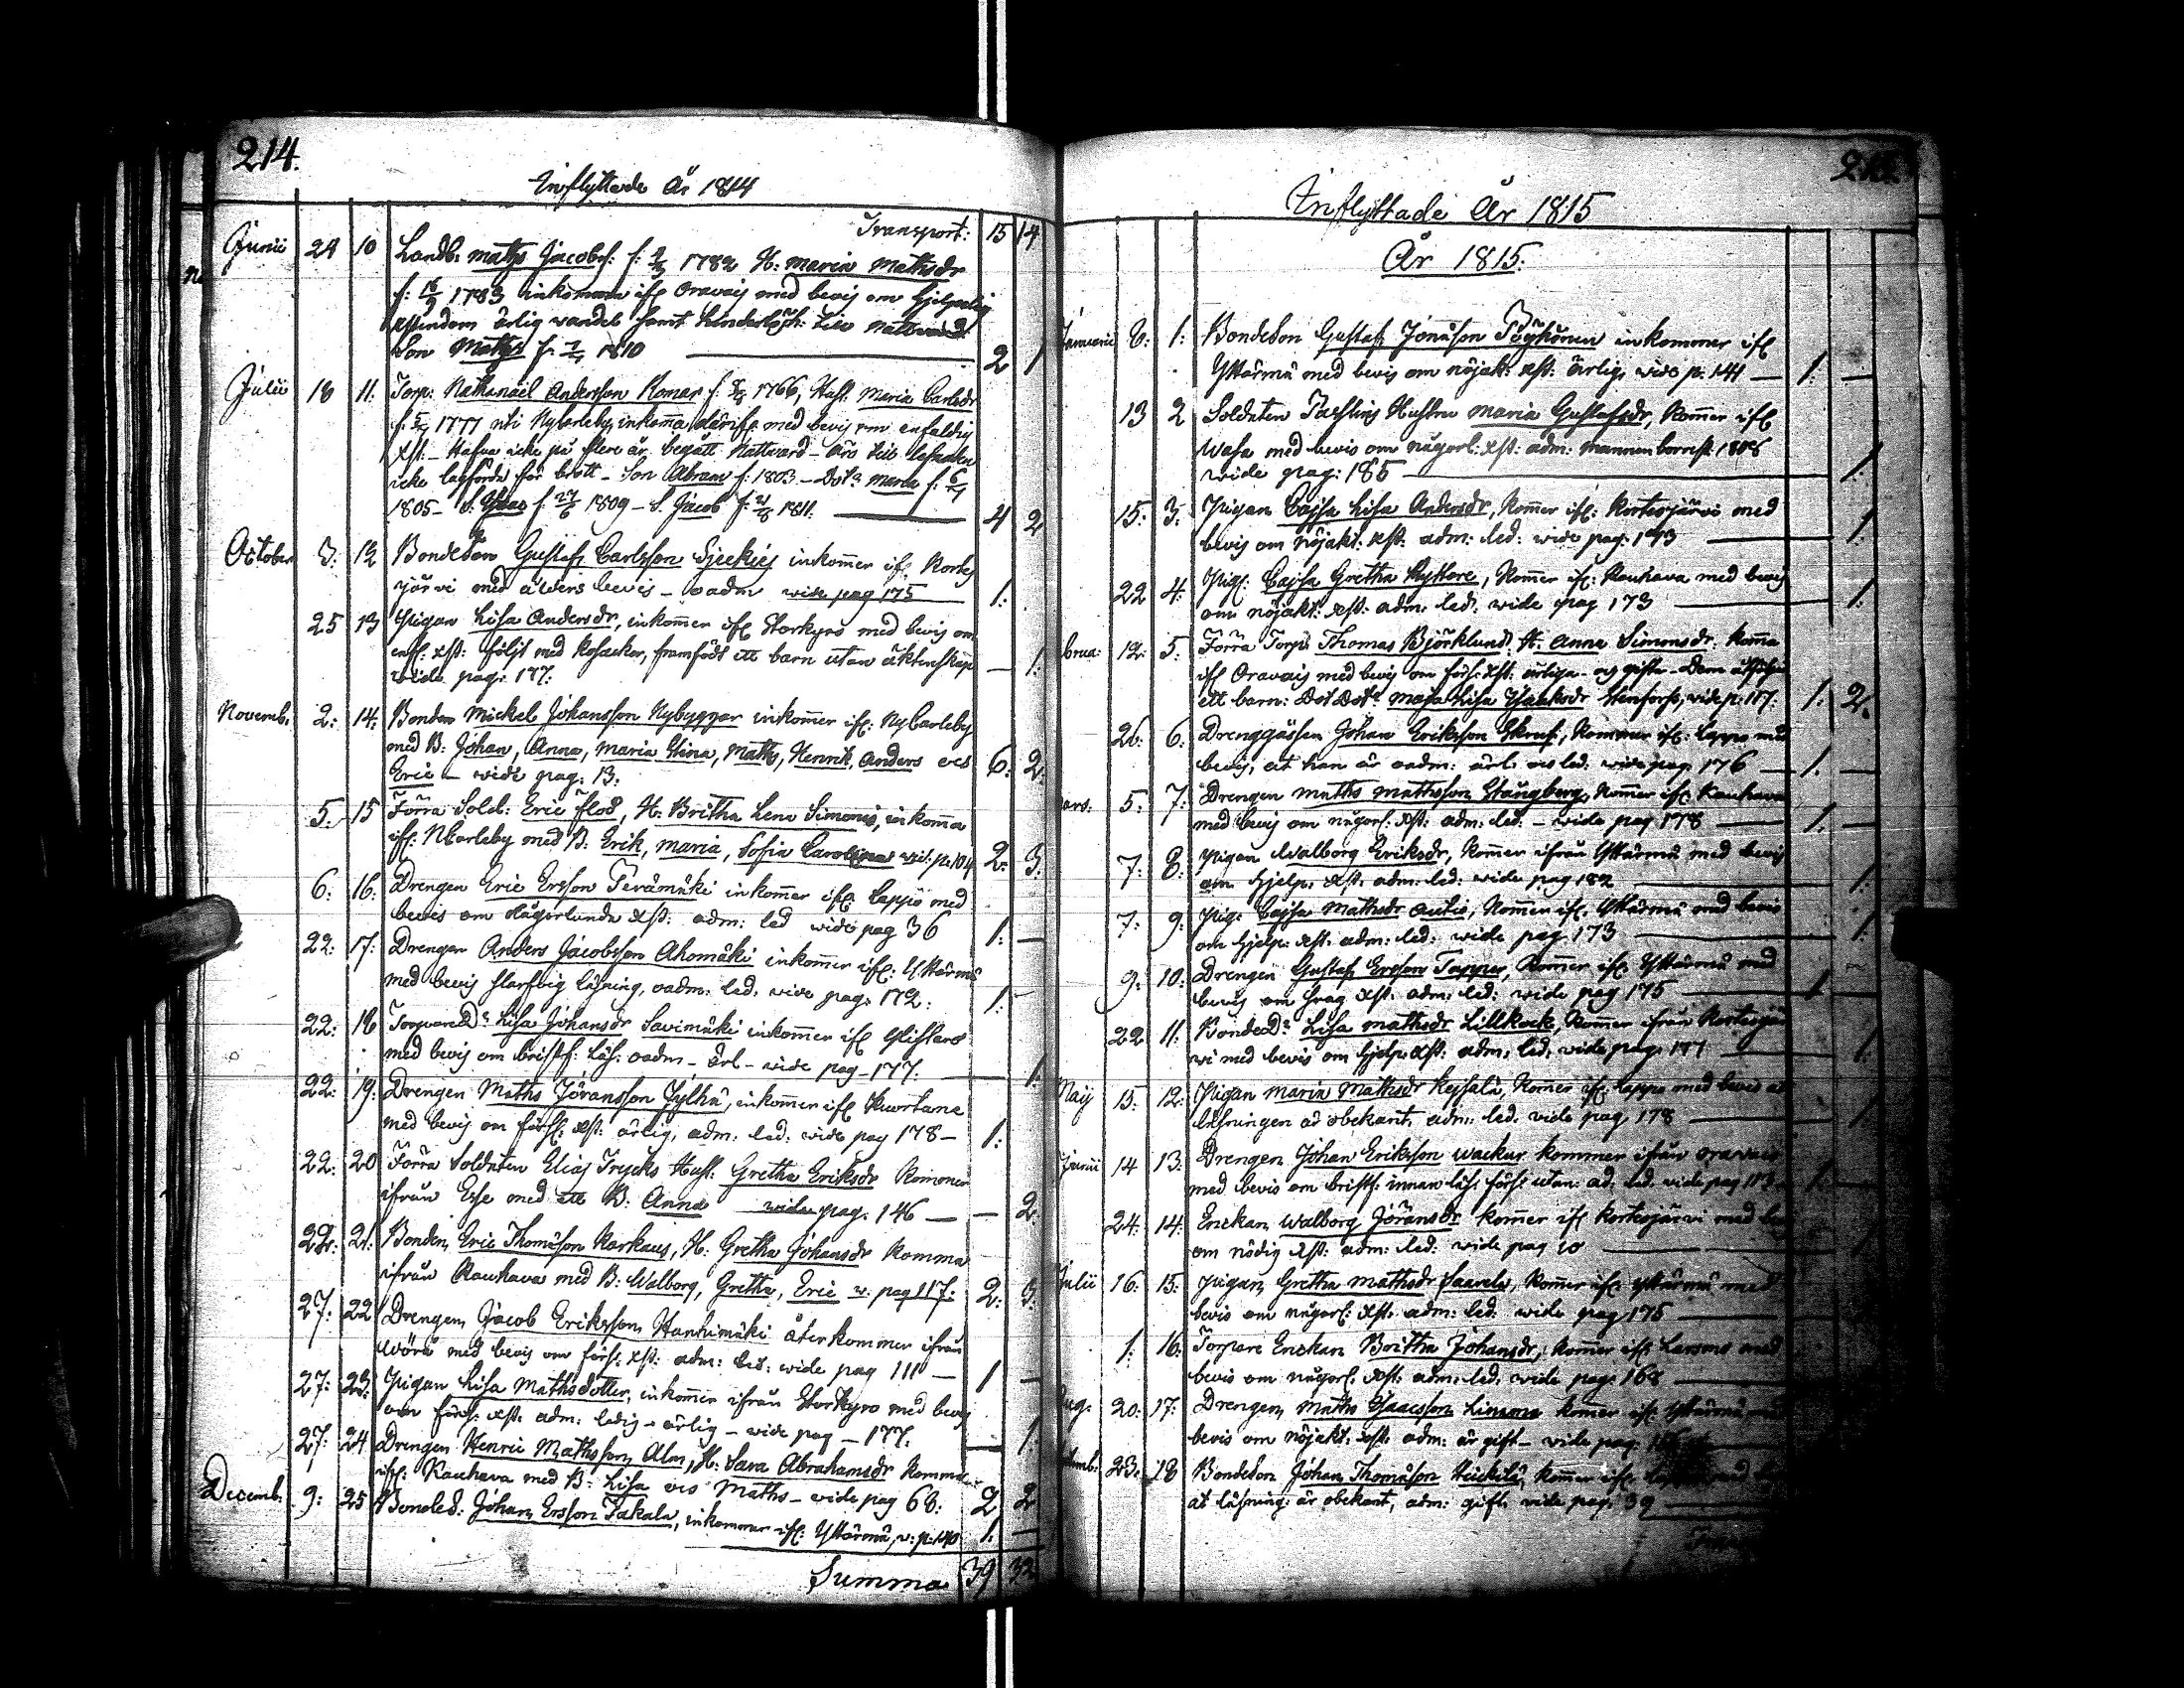 214.
Inflyttade År 1814
Transport: 15 14
Junii 24 10 Landb: Maths Jacobss: f: 1782 H: Maria Mathsdr
f: 1783 inkomma ifr Oravais med bevis om hjelpelig
Xstendom ärlig vandel samt
Son Maths f: 1810 2 1
Julii 18 11. Torp: Nathanäel Andersson Komar f: 1766, Hust. Maria Carlsdr
f: 1777 uti Nycarleby, inkomma därifr: med bevis om enfaldig
Xst: - Hafva icke på flere år begått Nattvard
icke lagförda för brott - Son Abram f: 1803 - Dotr Maria f: 6/
1805 - S: Isaac f: 27/6 1809 - S. Jacob f: 1811. 4 2
October 3: 12 Bondeson Gustaf Carlsson inkommer ifr: Kortes
järvi med ålders bevis - oadm wide pag 175 1:
25 13 Pigan Lisa Andersdr, inkommer ifr Storkyro med bevis om
enf: Xst: följt med Kosacker, framfödt ett barn utan äktenskap
wide pag: 177. 1:
Novemb: 2: 14: Bonden Mickel Johansson Nybyggar inkommer ifr: NyCarleby
med B: Johan, Anna, Maria Stina, Maths, Henrik, Anders och
Eric - wide pag: 13. 6: 2.
5. 15 Förra Sold: Eric Flod, H: Britha Lena Simonis, inkomma
ifr: NCarleby med B: Erik, Maria, Sofia Carolina wid: p: 104 2: 3.
6: 16: Drengen Eric Ersson Terämäki inkommer ifr: Lappo med
bevis om någorlunda Xst: adm: led wide pag 36 1: —
22: 17: Drengen Anders Jacobsson Ahomäki inkommer ifr: Ylihärmä
med bevis slarfvig läsning, oadm: led. wide pag: 172: 1:
22: 18 TorpareDr Lisa Johansdr Savimäki inkommer ifr Ylistaro
med bevis om bristf: läs: oadm - ärl - wide pag - 177. 1.
22: 19: Drengen Maths Jöransson Jylhä, inkommer ifr Kuortane
med bevis om försf: Xst: ärlig, adm: led: wide pag 178 - 1:
22: 20 Förra Soldaten Elias Trycks Hust: Gretha Eriksdr kommer
ifrån Esse med ett B: Anna wide pag: 146 — — 2.
24: 21: Bonden Eric Thomasson Karkaus, H: Gretha Johansdr komma
ifrån Kauhava med B: Walborg, Gretha, Eric w: pag 117. 2: 3.
27: 22 Drengen Jacob Eriksson Hanhimäki återkommer ifrån
Wörå med bevis om förs: Xst: adm: led: wide pag 111 — 1 —
27: 23. Pigan Lisa Mathsdotter, inkommer ifrån Storkyro med bevis
om förs: Xst: adm: ledig - ärlig - wide pag - 177. 1.
27: 24 Drengen Henric Mathsson Alm, H: Sara Abrahamsdr komma
ifr: Kauhava med B: Lisa och Maths - wide pag 68: 2 2
Decemb: 9: 25 Bondes: Johan Ersson Takala, inkommer ifr: Ylihärmä, w: p: 140 1. —
Summa 39 32
Inflyttade År 1815
År 1815.
Januarii 8: 1: Bondeson Gustaf Jonasson Pöyhönen inkommer ifr
Ylihärmä med bevis om nöjakt: Xst: ärlig, wide p: 141 — 1: —
13 2 Soldaten Hustru Maria Gustafsdr, kommer ifr
Wasa med bevis om någorl: Xst: adm: mannen 1808
wide pag: 185 1.
15: 3. Pigan Cajsa Lisa Andersdr, kommer ifr: Kortesjärvi med
bevis om nöjakt: Xst: adm: led: wide pag: 173 1.
22 4. Pig: Cajsa Gretha Ryttare, kommer ifr: Kauhava med bevis
om nöjakt: Xst: adm: led. wide pag 173 1:
brua: 12: 5. Förra Torp: Thomas Björklund H: Anna Simonsdr. komma
ifr Oravais med bevis om förs: Xst: ärliga - och gifta -
ett barn: Dotr Maja Lisa Isacksdr Stenfors, wide p: 117. 1: 2.
26. 6: Drenggåssen Johan Eriksson Skruf, kommer ifr: Lappo med
bevis, at han är oadm: ärl: och led: wide pag: 176 — 1. —
ars: 5. 7: Drengen Maths Mathsson Stångberg, kommer ifr: Kauhava
med bevis om någorl: Xst: adm: led: - wide pag 178 — 1: —
7: 8: Pigan Walborg Eriksdr, kommer ifrån Ylihärmä med bevis
om hjelp: Xst: adm: led: wide pag 182 1:
7: 9: Pig: Cajsa Mathsdr Autio, kommer ifr: Ylihärmä med bevis
om hjelp: Xst: adm: led: wide pag 173 1:
9: 10: Drengen Gustaf Ersson Tappur, kommer ifr: Ylihärmä med
bevis om svag Xst: adm: led: wide pag 175 1 —
22 11: BondeDr Lisa Mathsdr Lillkock, kommer ifrån Kortesjär
vi med bevis om hjelp: Xst: adm: led: wide pag: 177 1.
Maij 15. 12: Pigan Maria Mathsdr Keysala, kommer ifr: Lappo med bevis at
läsningen är obekant, adm: led. wide pag 178 1.
Junii 14 13: Drengen Johan Eriksson Wackur kommer ifrån Oravais
med bevis om bristf: innan läs: förs: utan: ad. led. wide pag 113. 1: —
24: 14: Enckan Walborg Jöransdr kommer ifr Kortesjärvi med
om nödig Xst: adm: led: wide pag 10
Julii 16: 15: Pigan Gretha Mathsdr Saarela, kommer ifr: Ylihärmä med
bevis om någorl: Xst: adm: led: wide pag 175
1: 16: Torpare Enckan Britha Johansdr, kommer ifr: Larsmo med
bevis om någorl: Xst: adm: led: wide pag: 168
Aug. 20: 17: Drengen Maths Isaacsson kommer ifr: Ylihärmä med
bevis om nöjakt: Xst: adm: är gift - wide pag:
23. 18 Bondeson Johan Thomasson Heickilä, kommer ifr:
at läsning: är obekant, adm: gift. wide pag: 39